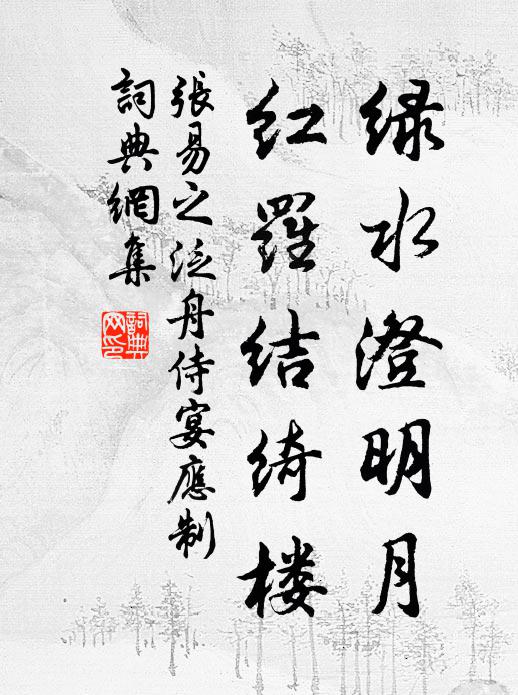 绿水澄明月
红罗结绮楼
張易之泛舟侍宴應制
詞典網集
詞典
网印